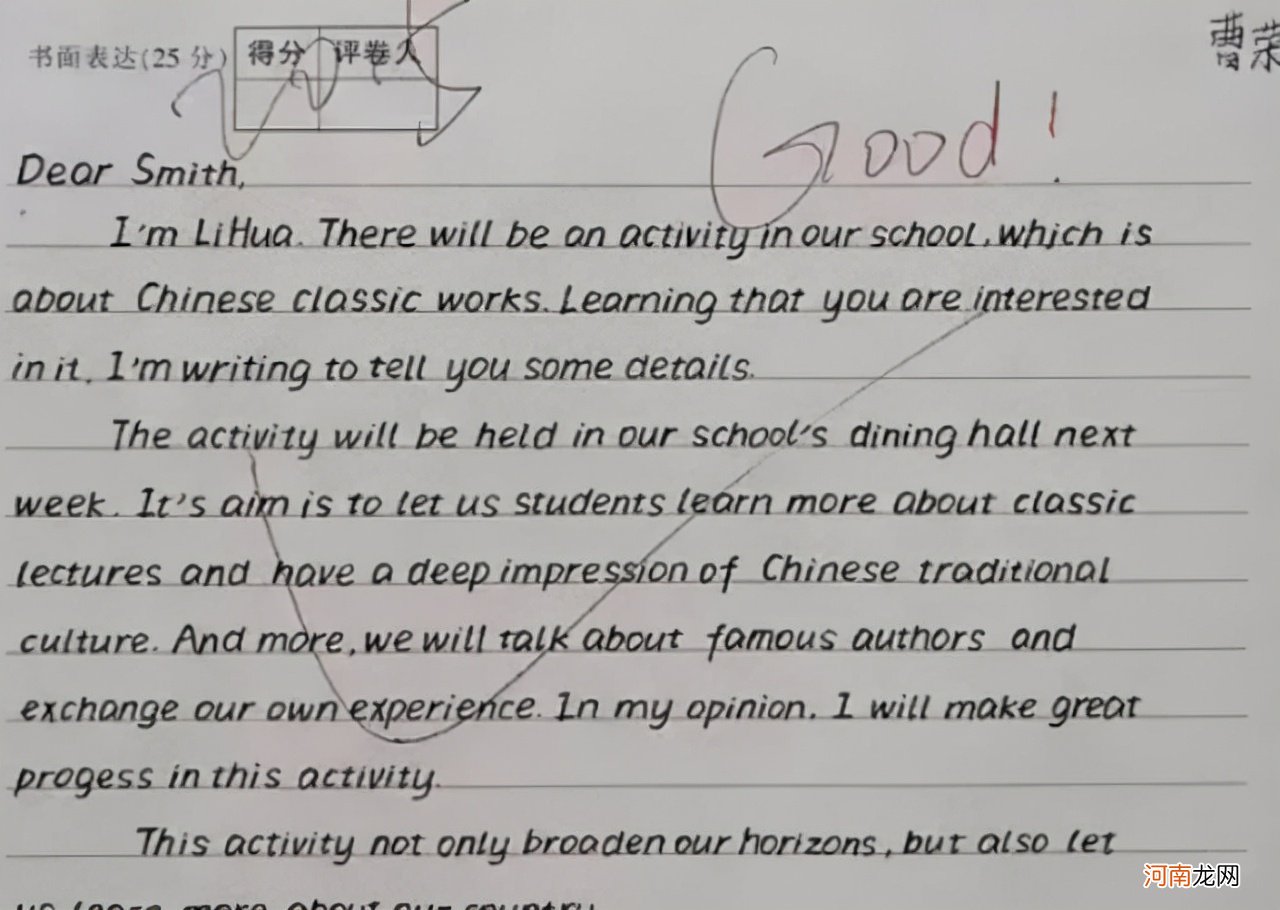 曹荣
书面表达(25 分)
得分 评卷人
Good!
Dear Smith,
I'm LiHua. There will be an activity in our school, which is
about Chinese classic works. Learning that you are interested
in it, I'm writing to tell you some details.
The activity will be held in our school's dining hall next
week. It's aim is to let us students learn more about classic
lectures and have a deep impression of Chinese traditional
culture. And more, we will talk about famous authors and
exchange our own experience. In my opinion, I will make great
progess in this activity.
This activity not only broaden our horizons, but also let
us learn more about our country.
河南龙网